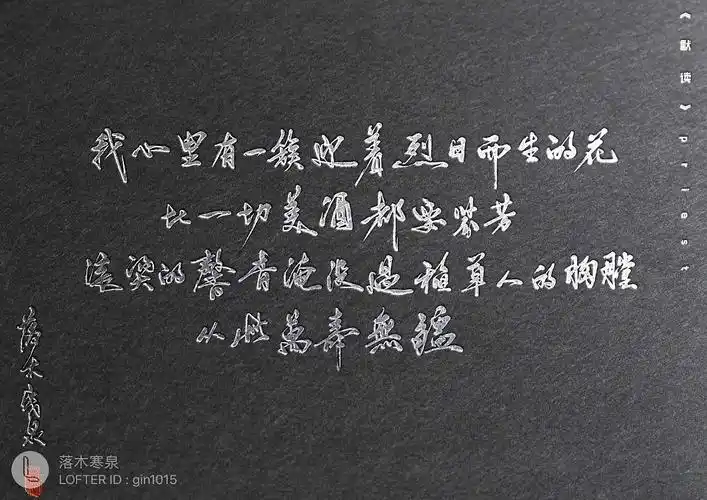 我心里有一簇迎着烈日而生的花
比一切美酒都要芬芳
滚烫的馨香淹没過稻草人的胸膛
从此萬壽無疆
《默读》priest
落木寒泉
落木寒泉
LOFTER ID : gin1015